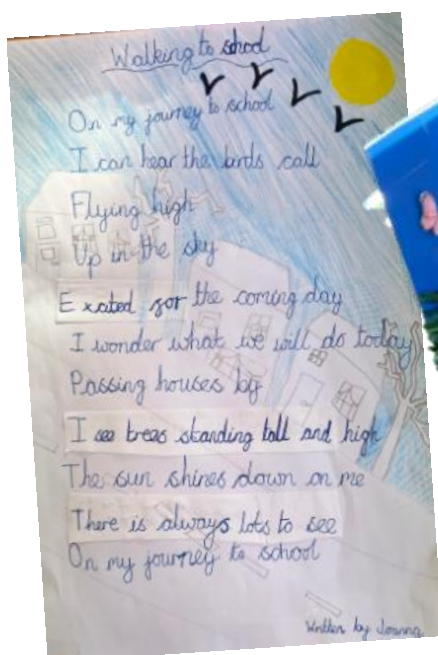 Walking to school
On my journey to school
I can hear the birds call
Flying high
Up in the sky
Exated for the coming day
I wonder what we will do today
Passing houses by
I see trees standing tall and high
The sun shines down on me
There is always lots to see
On my journey to school
Written by Joanna